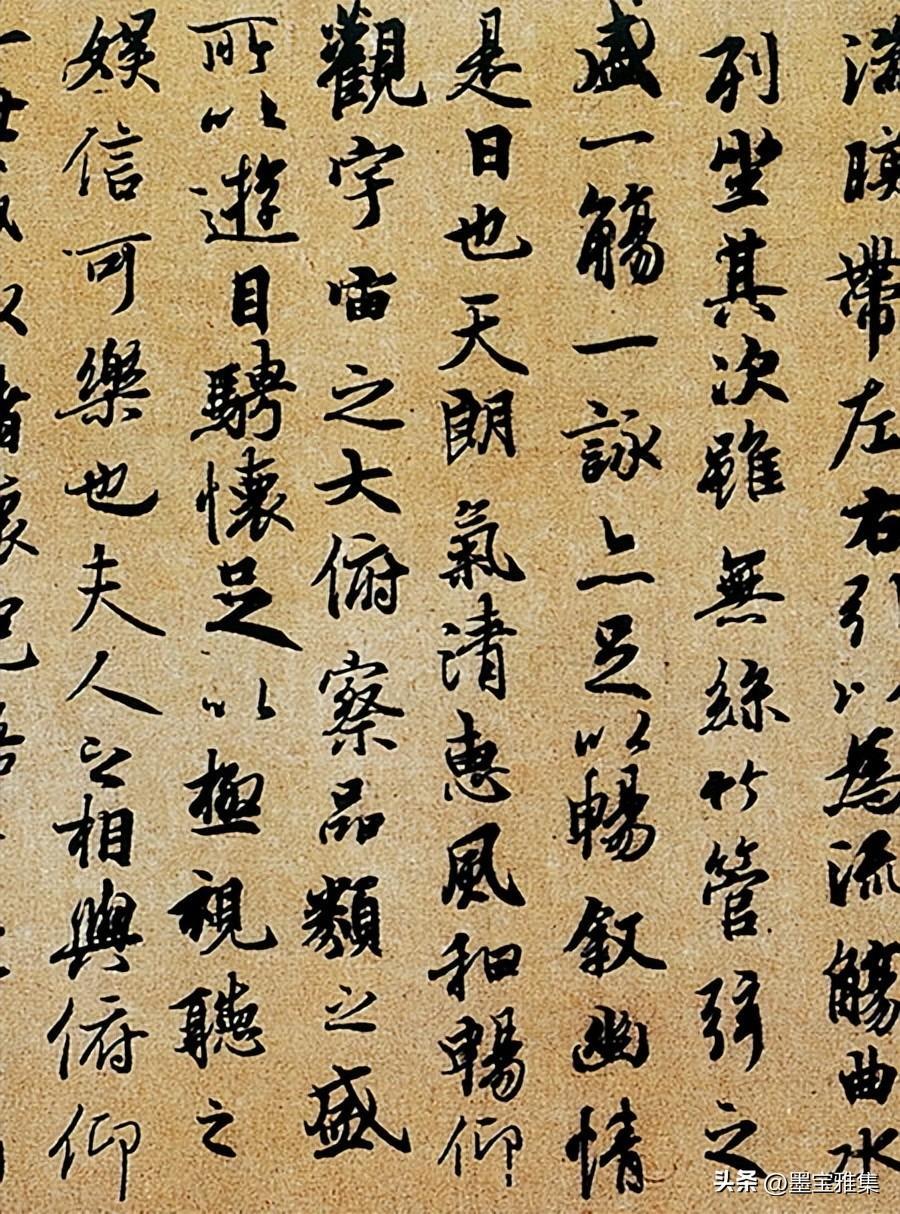 湍暎帶左右引以為流觴曲水
列坐其次雖無絲竹管弦之
盛一觴一詠亦足以暢叙幽情
是日也天朗氣清惠風和暢仰
觀宇宙之大俯察品類之盛
所以遊目騁懷足以極視聽之
娛信可樂也夫人之相與俯仰
头条 @墨宝雅集